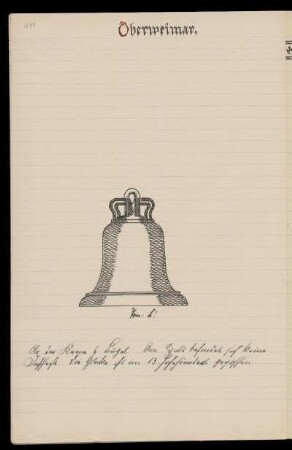 Oberweimar.
An der Krone 6 Bügel. Am Hals befindet sich keine
Inschrift. Die Glocke ist im 13. Jahrhundert gegossen.